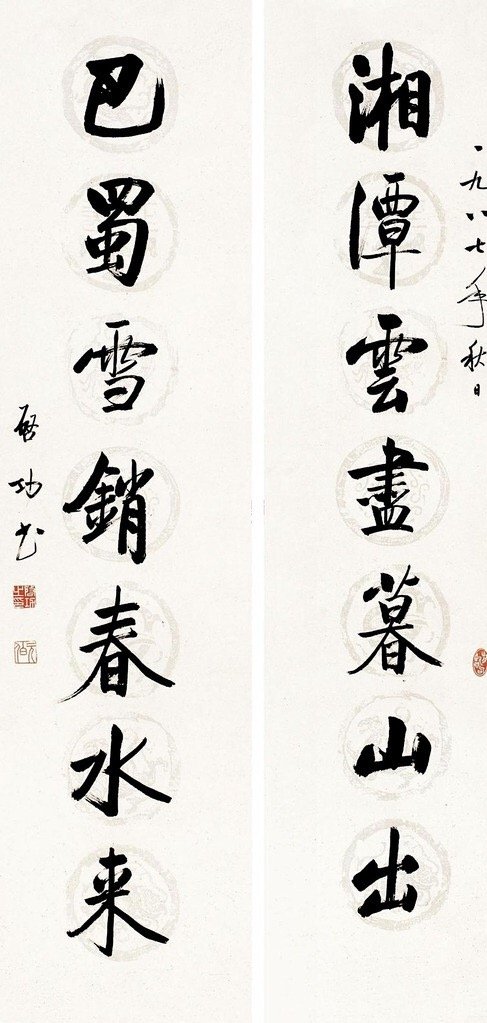 一九八七年秋日
湘潭雲盡暮山出
巴蜀雪銷春水来
啟功书